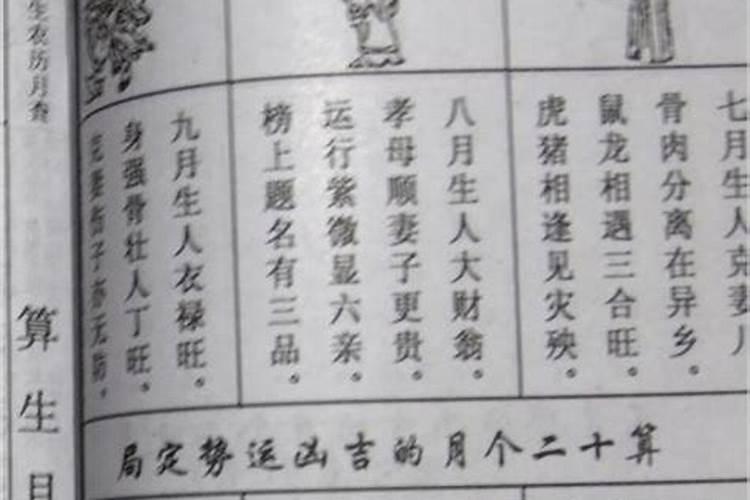 七月生人克妻儿
骨肉分离在异乡。
鼠龙相遇三合旺。
虎猪相逢见灾殃。
八月生人大财翁。
孝母顺妻子更贵。
运行紫微显六亲。
榜上题名有三品。
九月生人衣禄旺。
身强骨壮人丁旺。
克妻伤子亦无防。
局定势运凶吉的月个二十算
生农历月查
算生月